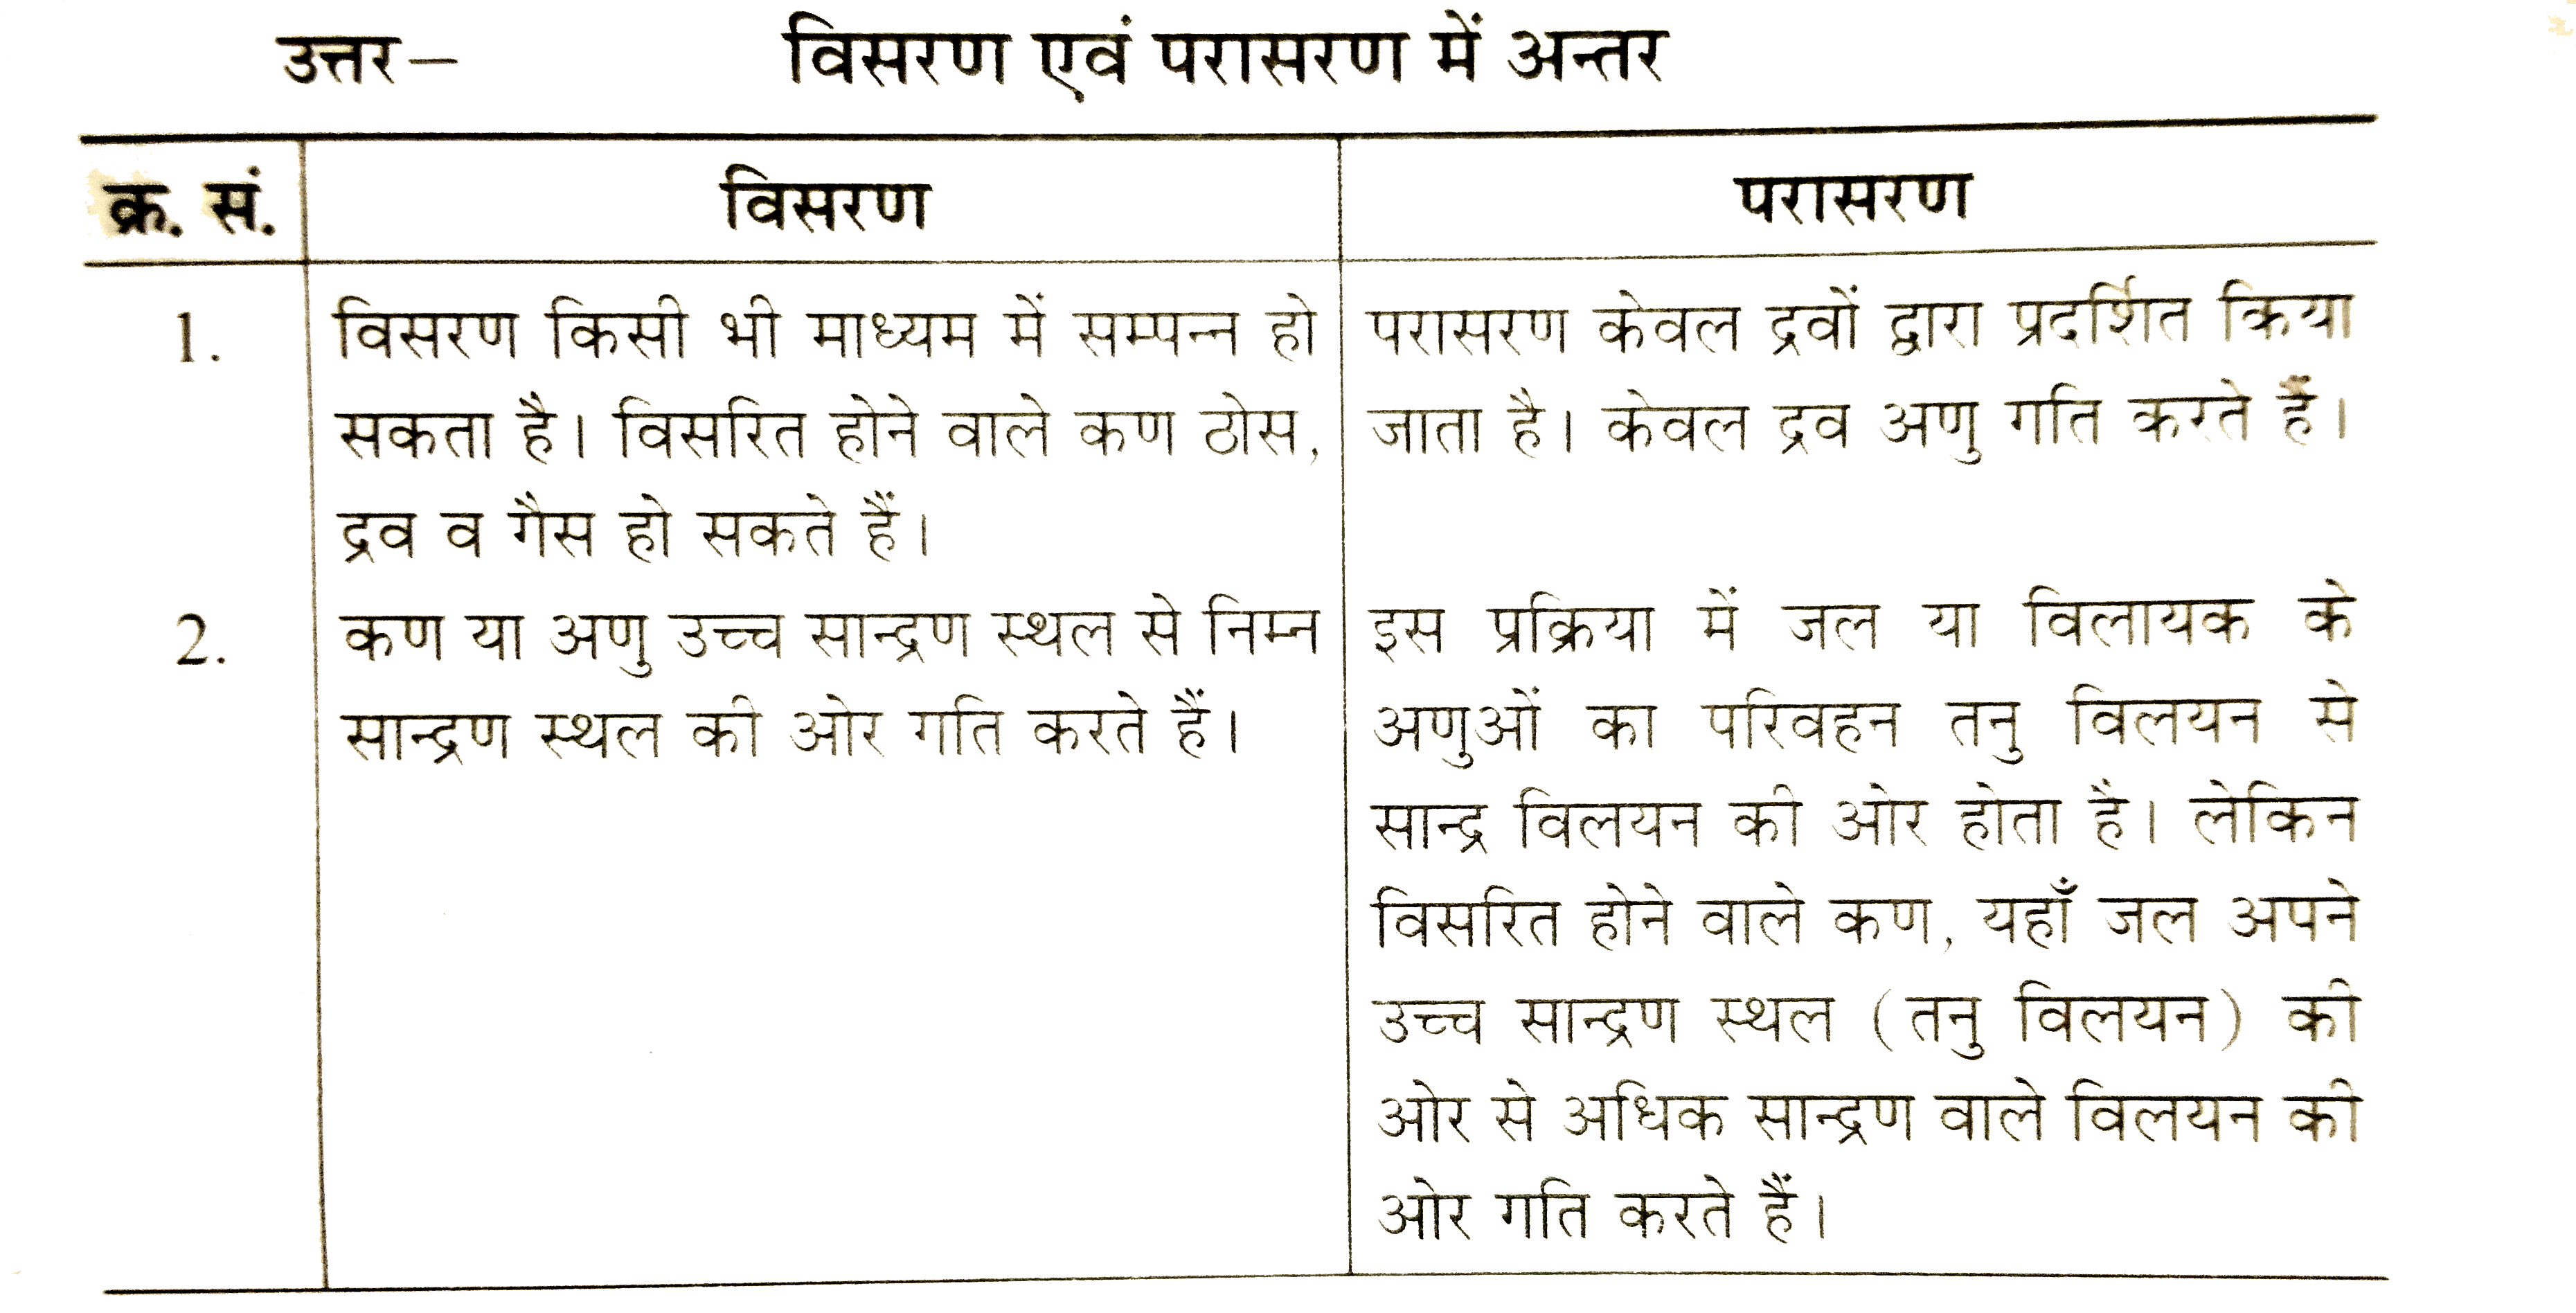 उत्तर– विसरण एवं परासरण में अन्तर
क्र. सं. विसरण परासरण
1. विसरण किसी भी माध्यम में सम्पन्न हो
सकता है। विसरित होने वाले कण ठोस,
द्रव व गैस हो सकते हैं।
परासरण केवल द्रवों द्वारा प्रदर्शित किया
जाता है। केवल द्रव अणु गति करते हैं।
2. कण या अणु उच्च सान्द्रण स्थल से निम्न
सान्द्रण स्थल की ओर गति करते हैं।
इस प्रक्रिया में जल या विलायक के
अणुओं का परिवहन तनु विलयन से
सान्द्र विलयन की ओर होता है। लेकिन
विसरित होने वाले कण, यहाँ जल अपने
उच्च सान्द्रण स्थल (तनु विलयन) की
ओर से अधिक सान्द्रण वाले विलयन की
ओर गति करते हैं।